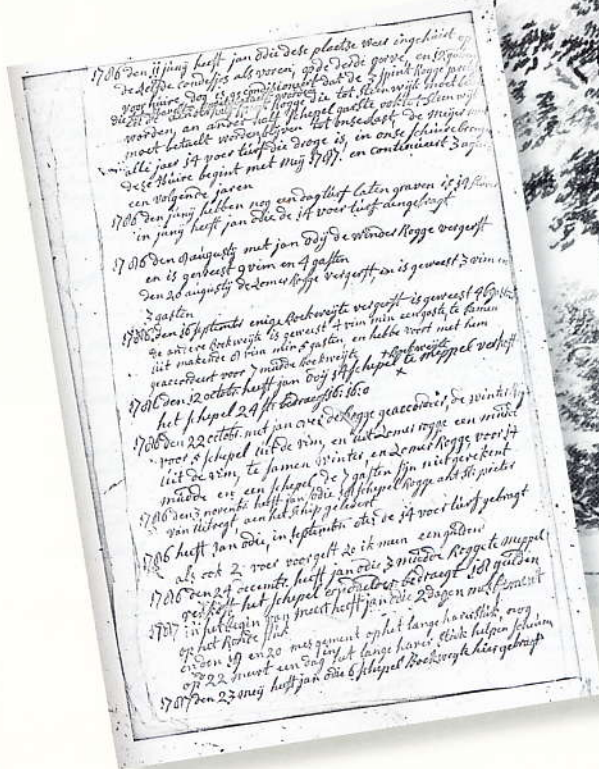 1786 den 11 junij heeft jan odie dese plaetse weer ingehuirt op
de selfde condisjes als voren, op de derde gorve, en
voor huire dog is geconditioneert dat de 3 spint Rogge
Rogge die tot steenwijk moet
worden en ander half schepel garste ook tot Steenwijk
moet betaelt worden blijven tot onse last de Meijer
alle jaer 14 voer turf die droge is, in onse schuire
dese Huire begint met Meij 1787. en continueert 3
een volgende jaren
1786 den junij hebben nog een dag turf laten graven is 14
in junij heeft jan odie de 14 voer turf aengebragt
1786 den augustij met jan odij de winder Rogge vergerft
en is geweest 9 vim en 4 gasten
den 26 augustij de somer Rogge vergerft, en is geweest 3 vim en
3 gasten
1786 den 16 september enige Boekweijte vergerft is geweest
de andere Boekweijte is geweest 4 vim min een gaste, te samen
uit makende vim min 5 gasten, en hebbe voort met hem
geaccordeert voor 7 mudde boekweijte
1786 den 12 octobr heeft jan odij 14 schepel Boekweijte te meppel verkoft
het schepel 24 st bedraegt 16:16:0
1786 den 22 octobr met jan de Rogge geaccordeer, de winter
voor 5 schepel uit de vim, en uit somer rogge een mudde
uit de vim, te samen winter, en somer Rogge voor 14
mudde en een schepel de 7 gasten sijn niet gerekent
1786 den 3 novembr heeft jan odie schepel Rogge ant st: pieter
van uitregt, aen het schip gelevert
1786 heeft jan odie, in september de 14 voer turf gebragt
als ook 2 voer voor gelt 20 ik meen een gulden
1786 den 24 decembr heeft jan odie 3 mudde Rogge te meppel
verkoft het schepel bedraegt 18 gulden
1787 in het begin van meert heeft jan odie 2 dagen mes gement
op het Ronde stuk
en den 19 en 20 mes gement op het lange haver stuk, nog
op 22 meert een dag int lange haver stuk helpen
1787 den 23 meij heeft jan odie 6 schepel Boekweijte hier gebragt